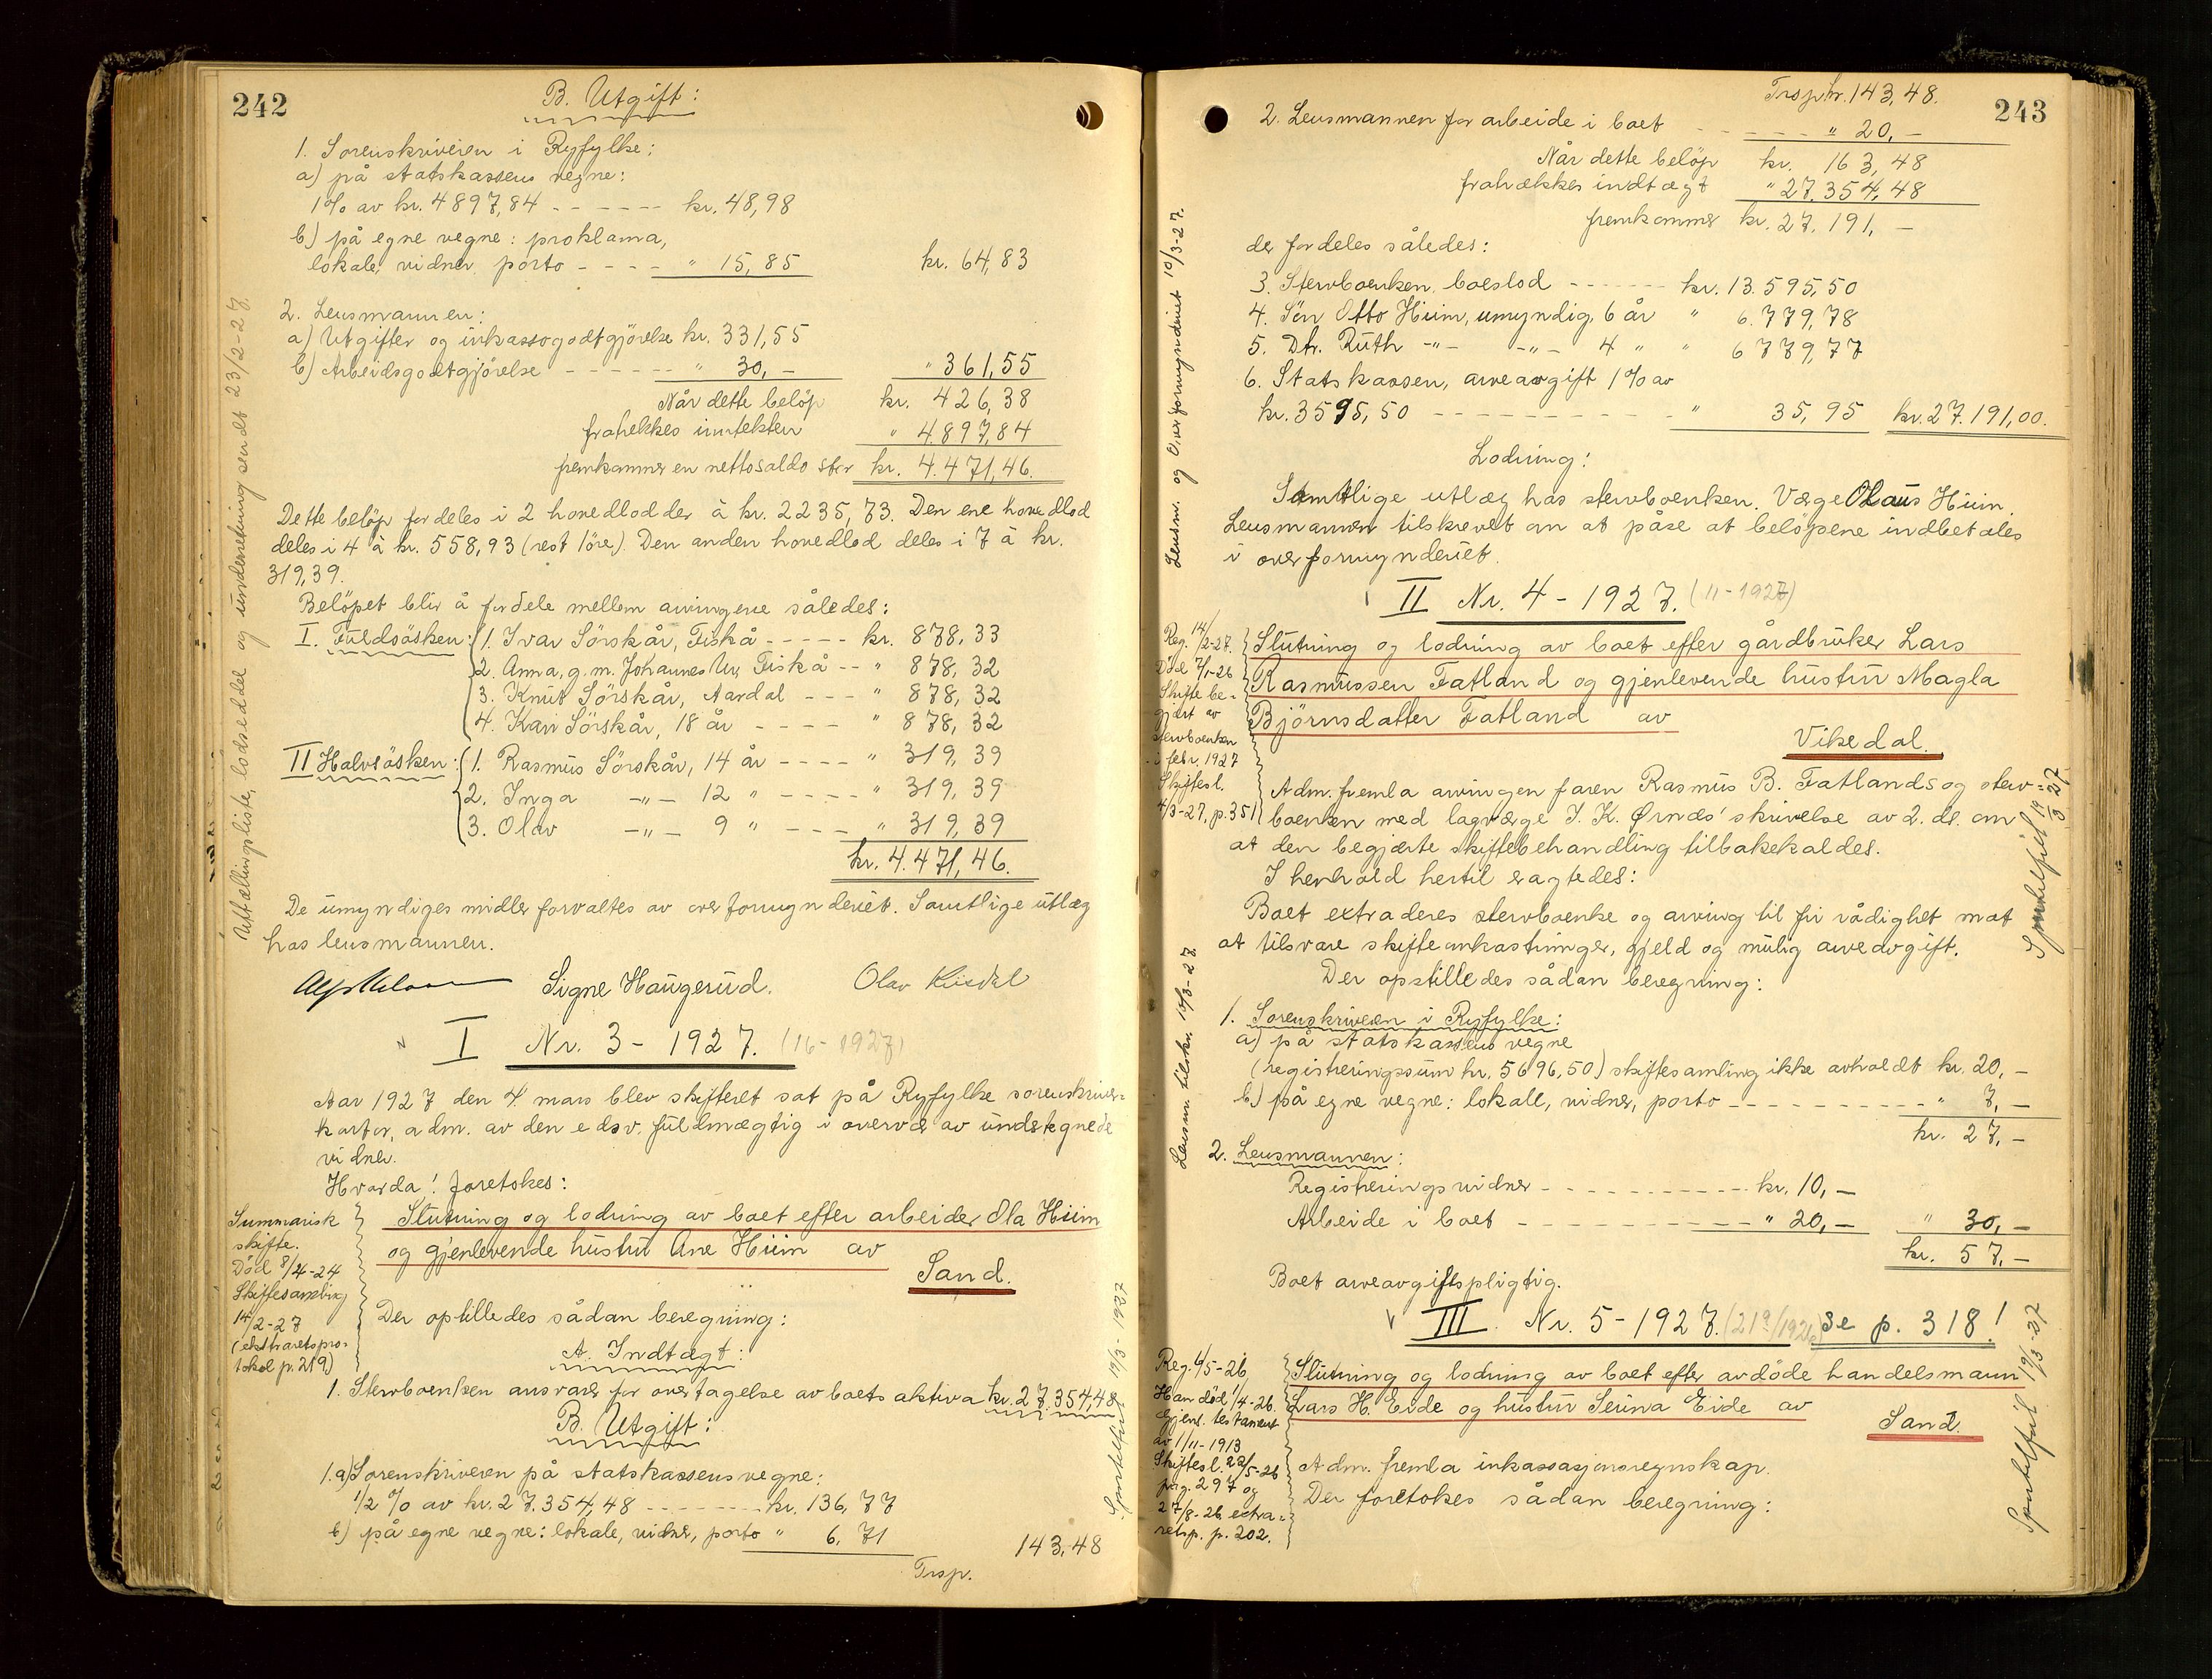 242
B. Utgift:
1. Sorenskriveren i Ryfylke:
a) på statskassens vegne:
1% av kr. 4897,84 - - - - - - kr. 48,98
b) på egne vegne: proklama,
lokale, vidner, porto - - - - " 15,85 kr. 64,83
2. Lensmannen:
a) Utgifter og inkassogodtgjörelse kr. 331,55
b) Arbeidsgodtgjörelse - - - - - - " 30,- " 361,55
Når dette belöp kr. 426,38
fratrekkes inntekten " 4.897,84
fremkommer en nettosaldo stor kr. 4.471,46.
Dette belöp fordeles i 2 hovedlodder à kr. 2235,73. Den ene hovedlod
deles i 4 à kr. 558,93 (rest 1öre). Den anden hovedlod deles i 7 à kr.
319,39.
Belöpet blir å fordele mellem arvingene således:
I. Fuldsösken: 1. Ivar Sörskår, Fiskå - - - - - kr. 878,33
2. Anna, g.m. Johannes Ur, Fiskå - - " 878,32
3. Knut Sörskår, Aardal - - - " 878,32
4. Kari Sörskår, 18 år - - - - " 878,32
II Halvsösken: 1. Rasmus Sörskår, 14 år - - - - " 319,39
2. Inga -"- 12 " - - - - " 319,39
3. Olav -"- 9 " - - - " 319,39
kr. 4.471,46.
De umyndiges midler forvaltes av overformynderiet. Samtlige utlæg
hos lensmannen.
Signe Haugerud. Olav
Uttællingsliste, lodseddel og underretning sendt 23/2-27.
I Nr. 3 - 1927. (16-1927)
Aar 1927 den 4. mars blev skifteret sat på Ryfylke sorenskriver-
kontor, adm. av den edsv. fuldmægtig i overvær av undertegnede
vidner.
Hvorda! foretokes:
Summarisk
skifte.
Död 8/4-24
Skiftesamling
14/2-27
(ekstraretspro-
tokol p. 219)
Slutning og lodning av boet efter arbeider Ola Hiim
og gjenlevende hustru Ane Hiim av
Sand.
Der opstilledes sådan beregning:
A. Indtægt:
1. Stervboenken ansvarer for overtagelse av boets aktiva kr. 27.354,48
B. Utgift:
1.a) Sorenskriveren på statskassens vegne:
1/2 % av kr. 27.354,48 - - - - - - kr. 136,77
b) på egne vegne: lokale, vidner, porto " 6,71 143,48
Trsp.
Sportelfrit 19/3-1927
243
Trsp. kr. 143,48.
2. Lensmannen for arbeide i boet - - - - - - " 20,-
Når dette belöp kr. 163,48
fratrækkes indtægt " 27.354,48
fremkommer kr. 27.191,-
der fordeles således:
3. Stervboenken, boeslod - - - - - - kr. 13.595,50
4. Sön Otto Hiim, umyndig, 6 år " 6.779,78
5. Dtr. Ruth -"- -"- 4 " " 6779,77
6. Statskassen, arveavgift 1% av
kr. 3595,50 - - - - - - - - - - " 35,95 kr. 27.191,00.
Lodning:
Samtlige utlæg hos stervboenken. Værge Olaus Hiim.
Lensmannen tilskrevet om at påse at belöpene indbetales
i overformynderiet.
Lensm. og Overformynderiet 10/3-27.
II Nr. 4 - 1927. (11-1927)
Reg. 14/2-27.
Död 7/1-26
Skifte be-
gjært av
stervboenken
i febr. 1927
Skiftesl.
4/3-27, p. 351
Slutning og lodning av boet efter gårdbruker Lars
Rasmussen Fatland og gjenlevende hustru Magla
Björnsdatter Fatland av
Vikedal.
Adm. fremla arvingen faren Rasmus B. Fatlands og sterv-
boenken med lagværge I. K. Ørnæs' skrivelse av 2. ds. om
at den begjærte skiftebehandling tilbakekaldes.
I henhold hertil eragtedes:
Boet extraderes stervboenke og arving til fri rådighet mot
at tilsvare skifteomkostninger, gjeld og mulig arveavgift.
Der opstilledes sådan beregning:
1. Sorenskriveren i Ryfylke:
a) på statskassens vegne
(registreringssum kr. 5696,50) skiftesamling ikke avholdt kr. 20,-
b) på egne vegne: lokale, vidner, porto - - - - - - - - - - " 7,-
kr. 27,-
2. Lensmannen:
Registreringsvidner - - - - - - - - - - kr. 10,-
Arbeide i boet - - - - - - - - - - - " 20,- " 30,-
kr. 57,-
Boet arveavgiftspligtig.
Lensm. tilskr. 10/3-27.
Sportelfrit 19/3 27
III Nr. 5 - 1927. (219/1926) Se p. 318!
Reg. 4/5-26
Han död 1/4-26.
Gjens. testament
av 1/11-1913
Skiftesl. 22/5-26
pag. 297 og
27/8-26 extra-
retsp. p. 202.
Slutning og lodning av boet efter avdöde handelsmann
Lars H. Eide og hustru Serina Eide av
Sand.
Adm. fremla inkassasjonsregnskap.
Der foretokes sådan beregning:
Sportelfrit 19/3-27